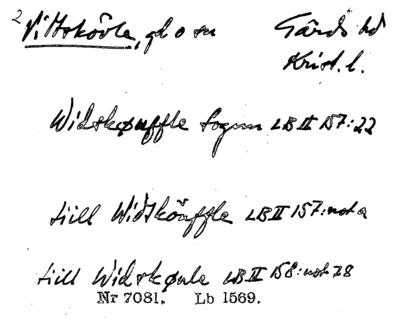 2 Vittskövle, gd o sn Gärds hd
Krist. l.
Widskøuffle sognn LB II 157:22
till Widsköuffle LB II 157:not a
till Widskøule LB II 158:not 78
Nr 7081. Lb 1569.